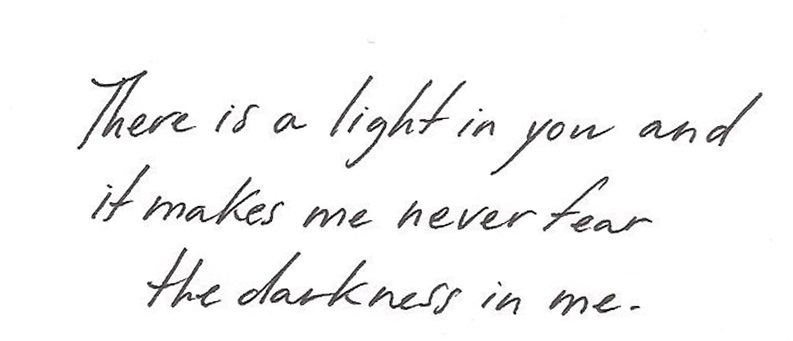 There is a light in you and
it makes me never fear
the darkness in me.